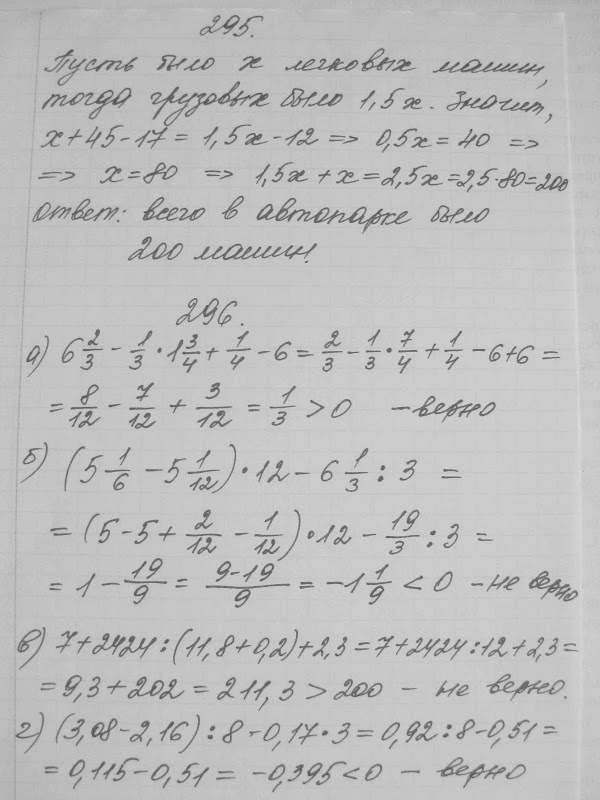 295.
Пусть было x легковых машин,
тогда грузовых было 1,5x. Значит,
x+45-17 = 1,5x-12 => 0,5x = 40 =>
=> x=80 => 1,5x+x=2,5x=2,5·80=200
ответ: всего в автопарке было
200 машин.
296.
а) 6 2/3 - 1/3 · 1 3/4 + 1/4 - 6 = 2/3 - 1/3 · 7/4 + 1/4 - 6+6 =
= 8/12 - 7/12 + 3/12 = 1/3 > 0 - верно
б) (5 1/6 - 5 1/12) · 12 - 6 1/3 : 3 =
= (5-5+ 2/12 - 1/12) · 12 - 19/3 : 3 =
= 1 - 19/9 = (9-19)/9 = -1 1/9 < 0 - не верно
в) 7+2424:(11,8+0,2)+2,3=7+2424:12+2,3=
= 9,3+202 = 211,3 > 200 - не верно.
г) (3,08-2,16):8-0,17·3=0,92:8-0,51=
= 0,115-0,51= -0,395<0 - верно